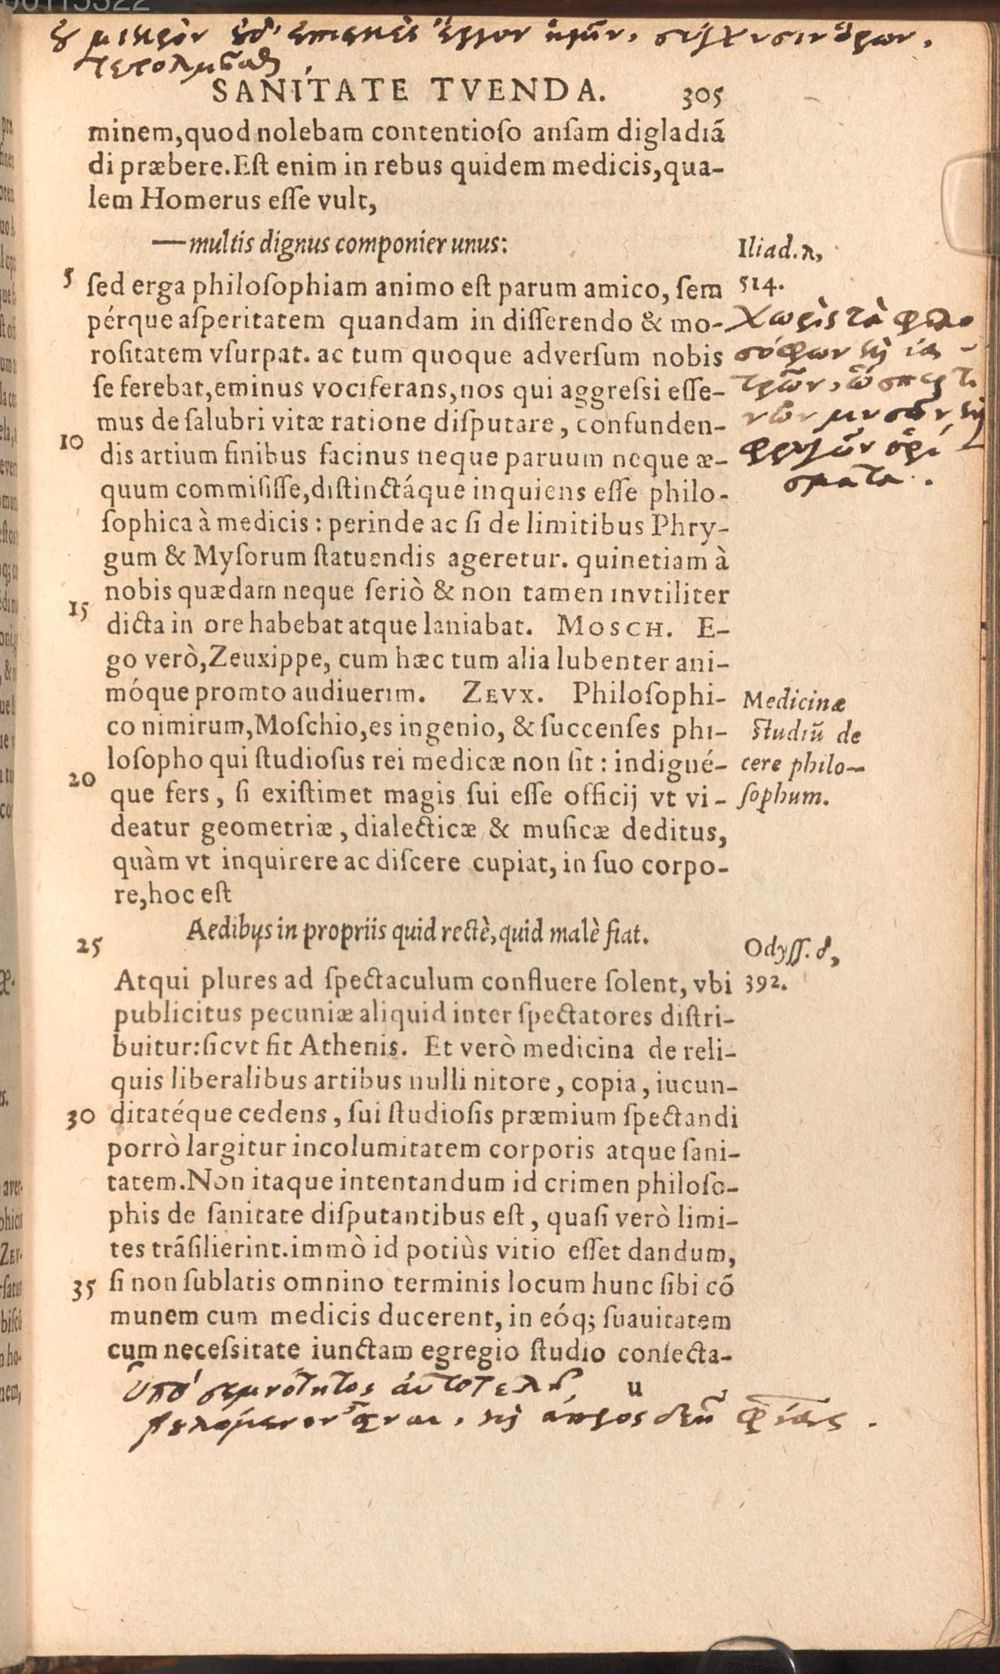 SANITATE TVENDA. 305
minem,quod nolebam contentioſo anſam digladiã
di præbere.Eſt enim in rebus quidem medicis,qua-
lem Homerus eſſe vult,
—multis dignus componier unus:
Iliad.λ,
5 ſed erga philoſophiam animo eſt parum amico, ſem
514.
pérque aſperitatem quandam in diſſerendo & mo-
Χωρὶς τὰ φιλο
roſitatem vſurpat. ac tum quoque adverſum nobis
σόφων
se ferebat,eminus vociferans,nos qui aggreſſi eſſe-
τρῶν, ὥσπερ τι
mus de ſalubri vitæ ratione diſputare, confunden-
νῶν μυσῶν
10 dis artium finibus facinus neque paruum neque æ-
φρυγῶν ὁρί
quum commiſiſſe,diſtinctáque inquiens eſſe philo-
σματα.
ſophica à medicis: perinde ac ſi de limitibus Phry-
gum & Myſorum ſtatuendis ageretur. quinetiam à
nobis quædam neque ſeriò & non tamen invtiliter
15 dicta in ore habebat atque laniabat. MOSCH. E-
go verò,Zeuxippe, cum hæc tum alia lubenter ani-
móque promto audiuerim. ZEVX. Philoſophi-
Medicinæ
co nimirum,Moſchio,es ingenio, & ſuccenſes phi-
ſtudiũ de
loſopho qui ſtudioſus rei medicæ non ſit: indigné-
cere philo-
20 que fers, ſi exiſtimet magis ſui eſſe officij vt vi-
ſophum.
deatur geometriæ, dialecticæ & muſicæ deditus,
quàm vt inquirere ac diſcere cupiat, in ſuo corpo-
re,hoc eſt
25 Aedibus in propriis quid rectè,quid malè fiat.
Odyſſ.δ,
Atqui plures ad ſpectaculum confluere ſolent, vbi
392.
publicitus pecuniæ aliquid inter ſpectatores diſtri-
buitur:ſicvt fit Athenis. Et verò medicina de reli-
quis liberalibus artibus nulli nitore, copia, iucun-
30 ditatéque cedens, ſui ſtudioſis præmium ſpectandi
porrò largitur incolumitatem corporis atque ſani-
tatem.Non itaque intentandum id crimen philoſo-
phis de ſanitate diſputantibus eſt, quaſi verò limi-
tes trãſilierint.immò id potiùs vitio eſſet dandum,
35 ſi non ſublatis omnino terminis locum hunc ſibi cõ
munem cum medicis ducerent, in eóq; ſuauitatem
cum neceſsitate iunctam egregio ſtudio conſecta-
u